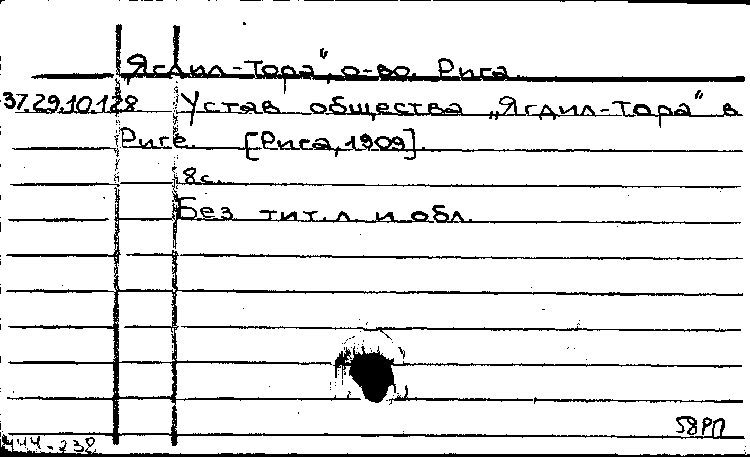 „Ягдил-Тора", о-во. Рига.
37.29.10.128 Устав общества „Ягдил-Тора" в
Риге. [Рига, 1909].
8с.
Без тит. л. и обл.
58РП
444-238